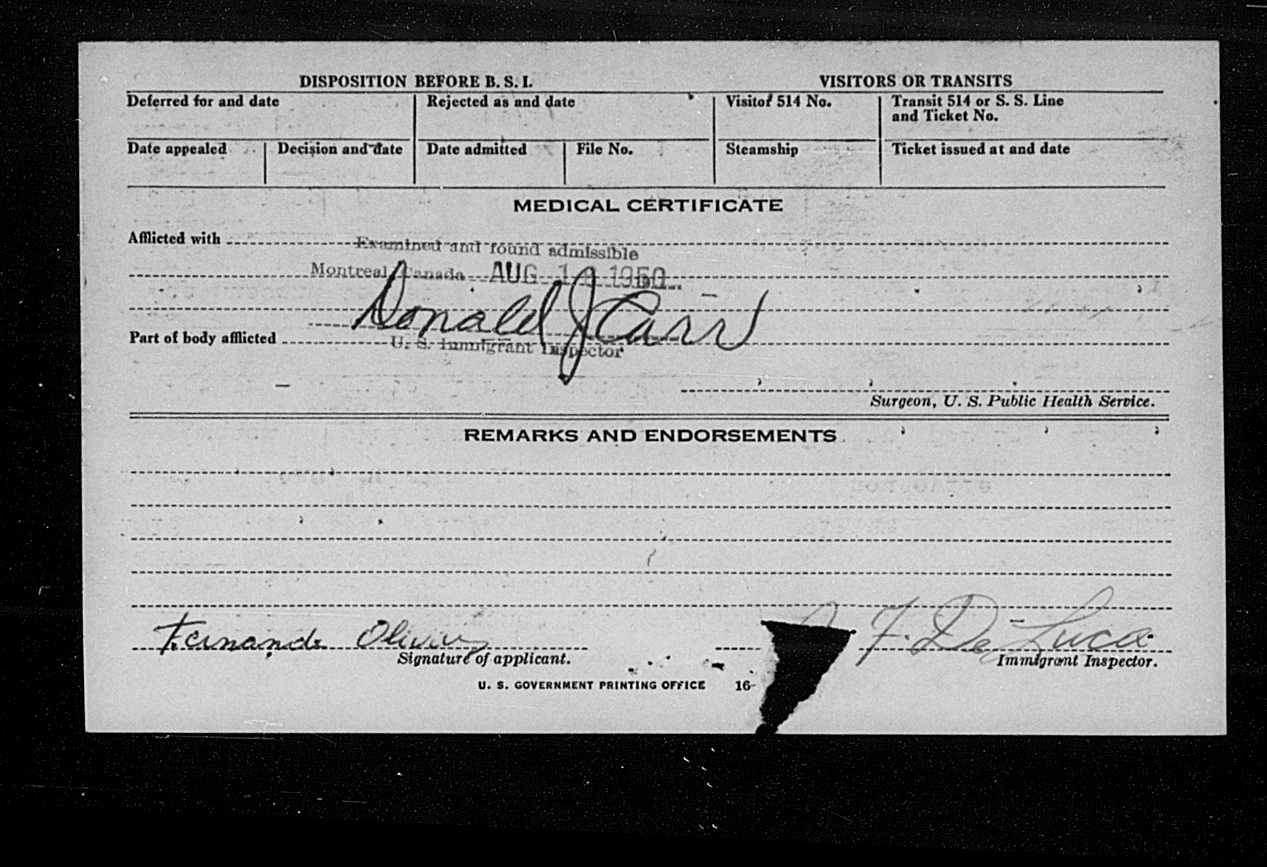 DISPOSITION BEFORE B. S. I. VISITORS OR TRANSITS
Deferred for and date Rejected as and date Visitor 514 No. Transit 514 or S. S. Line
and Ticket No.
Date appealed Decision and date Date admitted File No. Steamship Ticket issued at and date
MEDICAL CERTIFICATE
Afflicted with
Examined and found admissible
Montreal Canada AUG 1950
Donald J Carr
Part of body afflicted
U. S. Immigrant Inspector
Surgeon, U. S. Public Health Service.
REMARKS AND ENDORSEMENTS
Fernande F. De Luca
Signature of applicant. Immigrant Inspector.
U. S. GOVERNMENT PRINTING OFFICE 16-